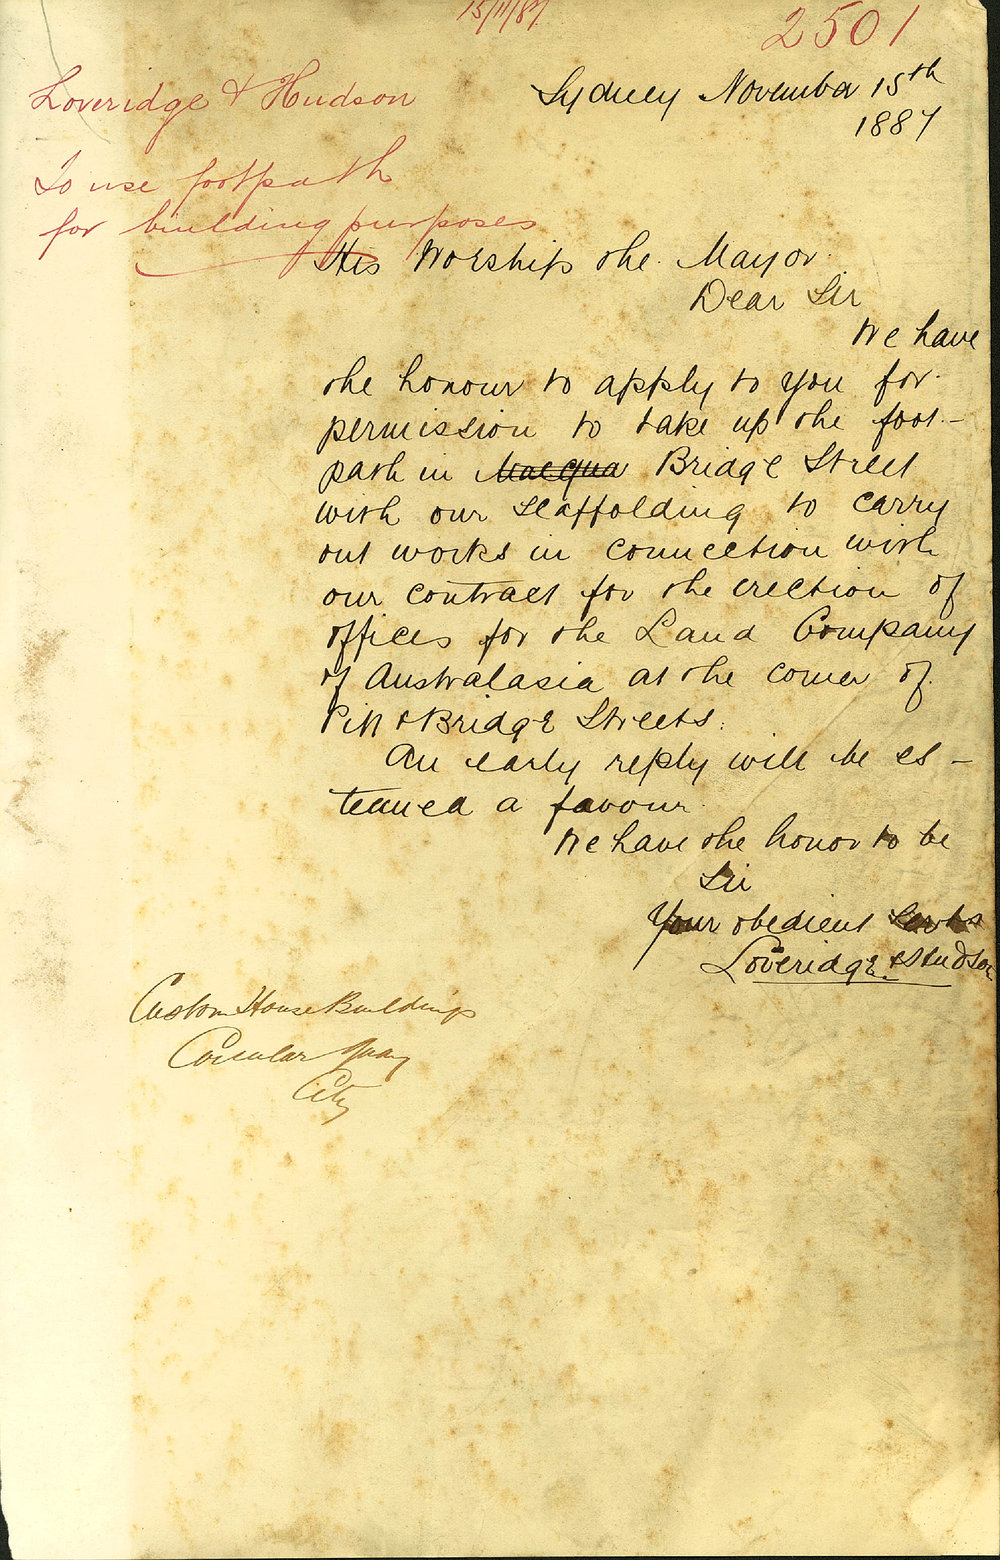 15/11/87
2501
Loveridge & Hudson
To use footpath
for building purposes
Sydney November 15th
1887
His Worship the Mayor
Dear Sir
We have
the honour to apply to you for
permission to take up the foot-
path in Macqua Bridge Street
with our scaffolding to carry
out works in connection with
our contract for the erection of
offices for the Land Company
of Australasia at the corner of
Pitt & Bridge Streets.
An early reply will be es-
teemed a favour
We have the honor to be
Sir
Your obedient Servts
Loveridge & Hudson
Custom House Buildings
Circular Quay
City